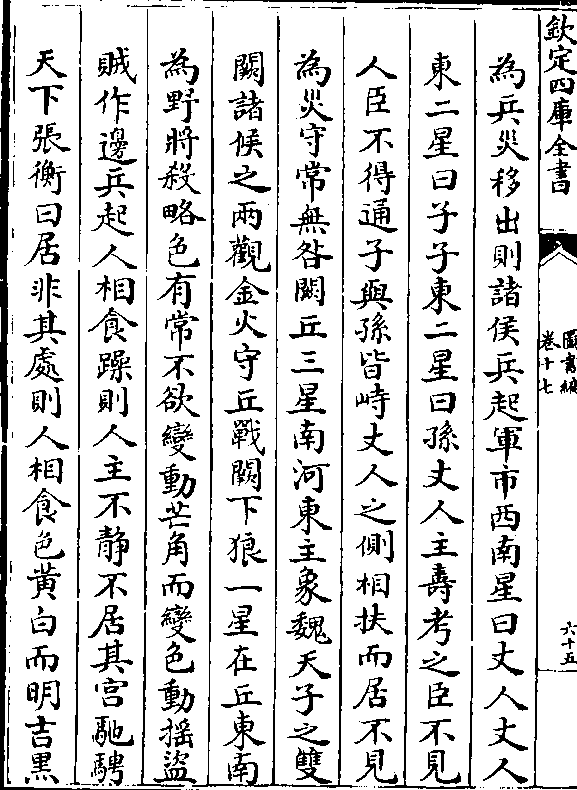 欽定四庫全書
圖書編
卷十七
六十五
為兵災移出則諸侯兵起軍市西南星曰丈人丈人
東二星曰子子東二星曰孫丈人主壽考之臣不見
人臣不得通子與孫皆峙丈人之側相扶而居不見
為災守常無咎闕丘三星南河東主象魏天子之雙
闕諸侯之兩觀金火守丘戰闕下狼一星在丘東南
為野將殺略色有常不欲變動芒角而變色動揺盜
賊作邊兵起人相食躁則人主不静不居其宮馳騁
天下張衡曰居非其處則人相食色黄白而明吉黒